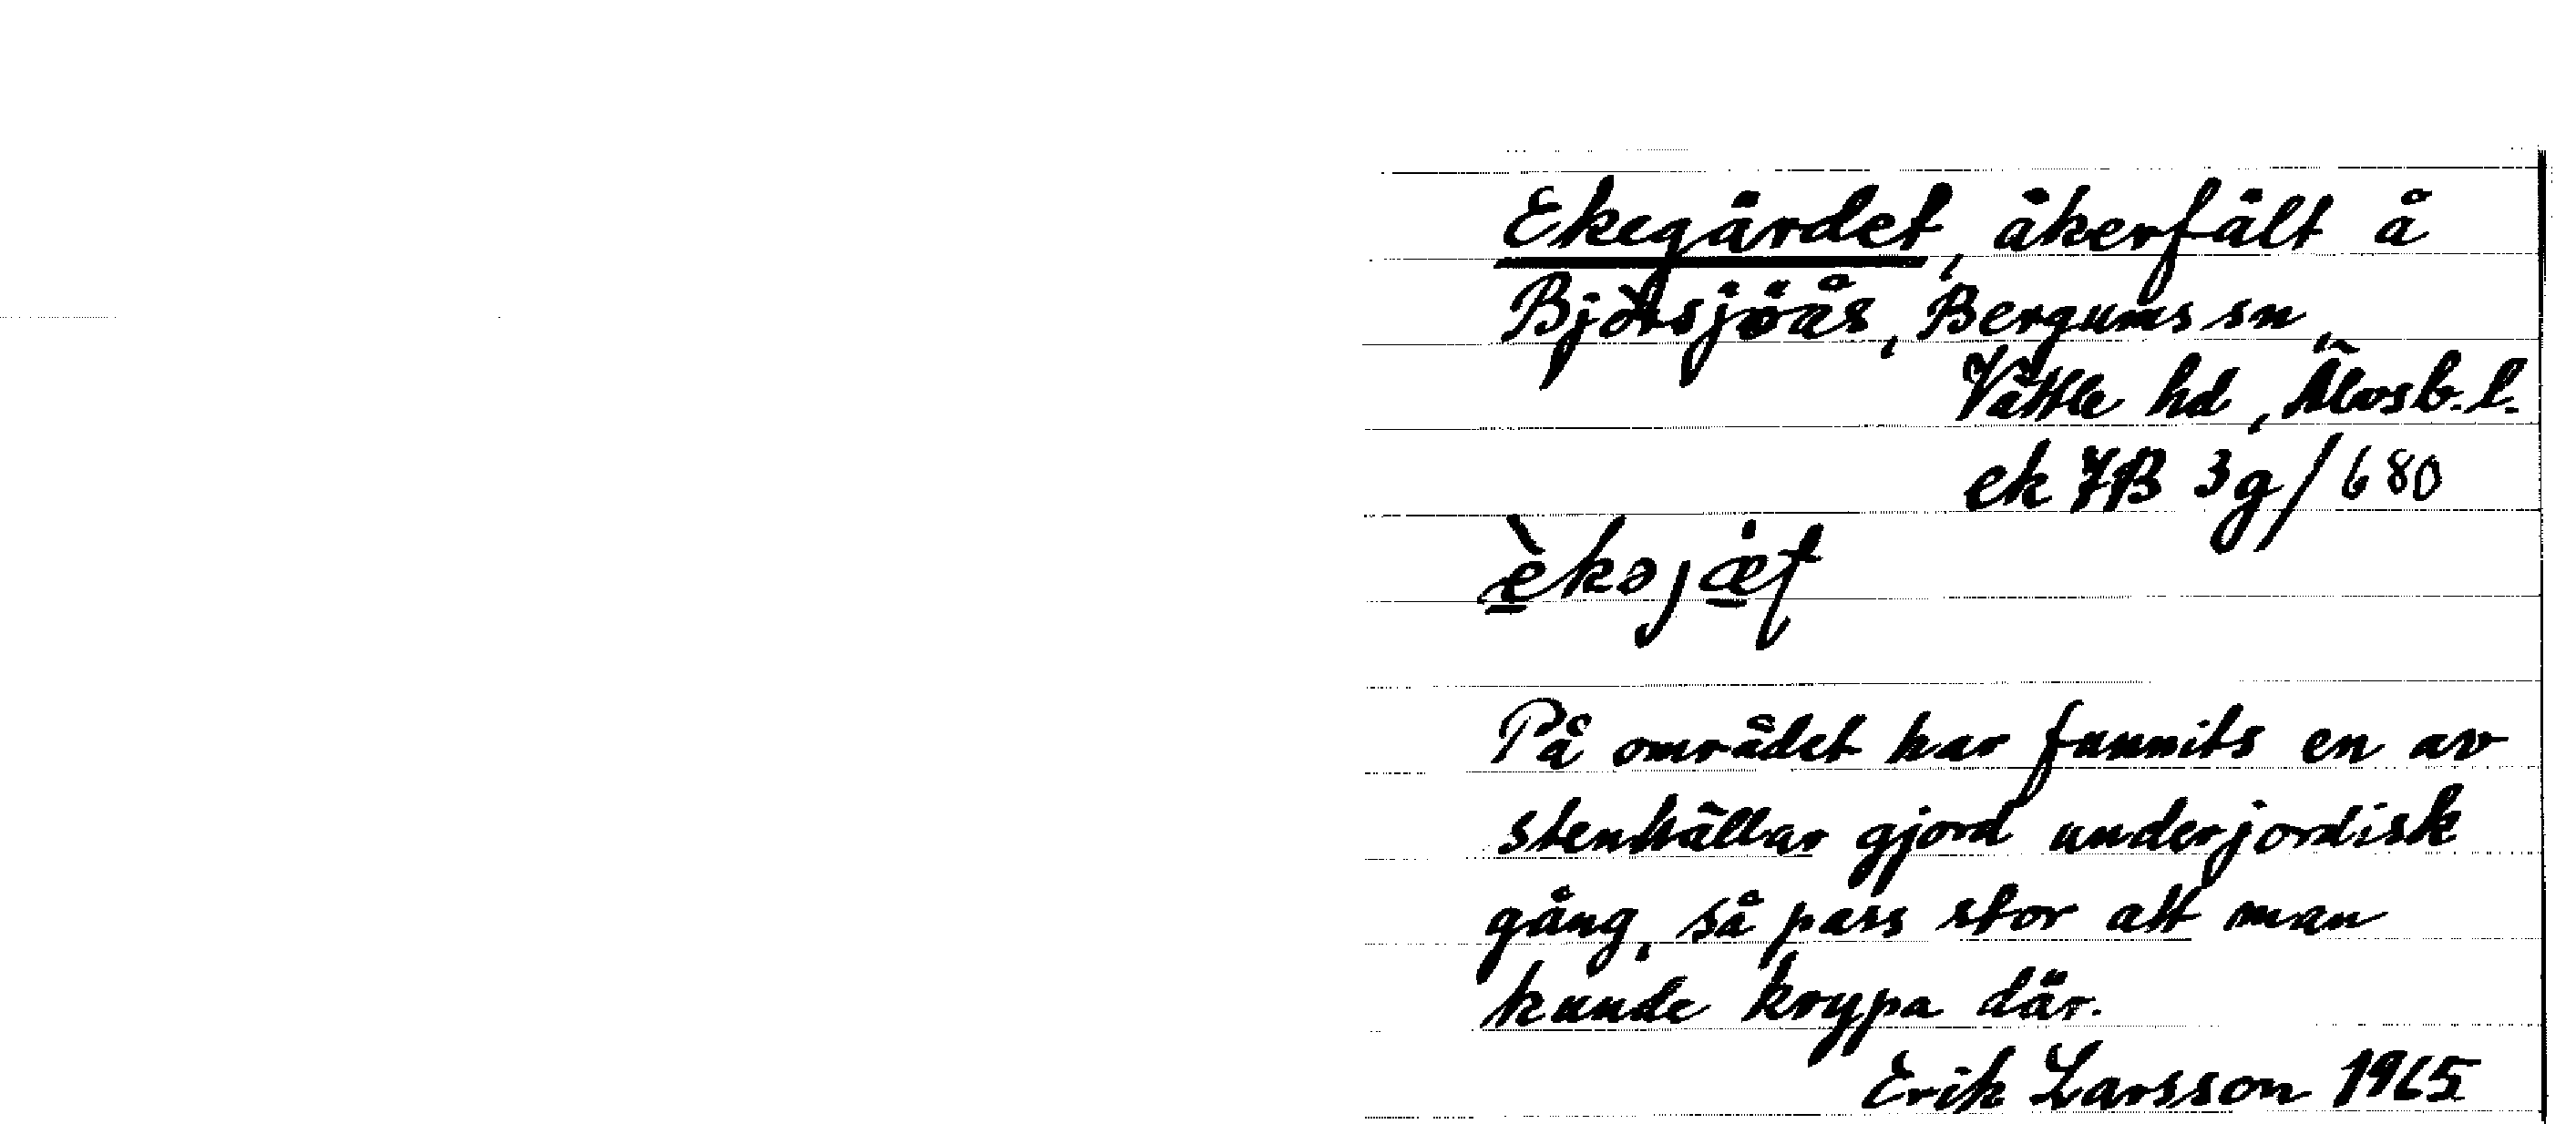 Ekegärdet, åkerfält å
Björsjöås, Bergums sn,
Vättle hd, Älvsb. l.
ek 7B 3g/680
På området har funnits en av
stenhällar gjord underjordisk
gång, så pass stor att man
kunde krypa där.
Erik Larsson 1965